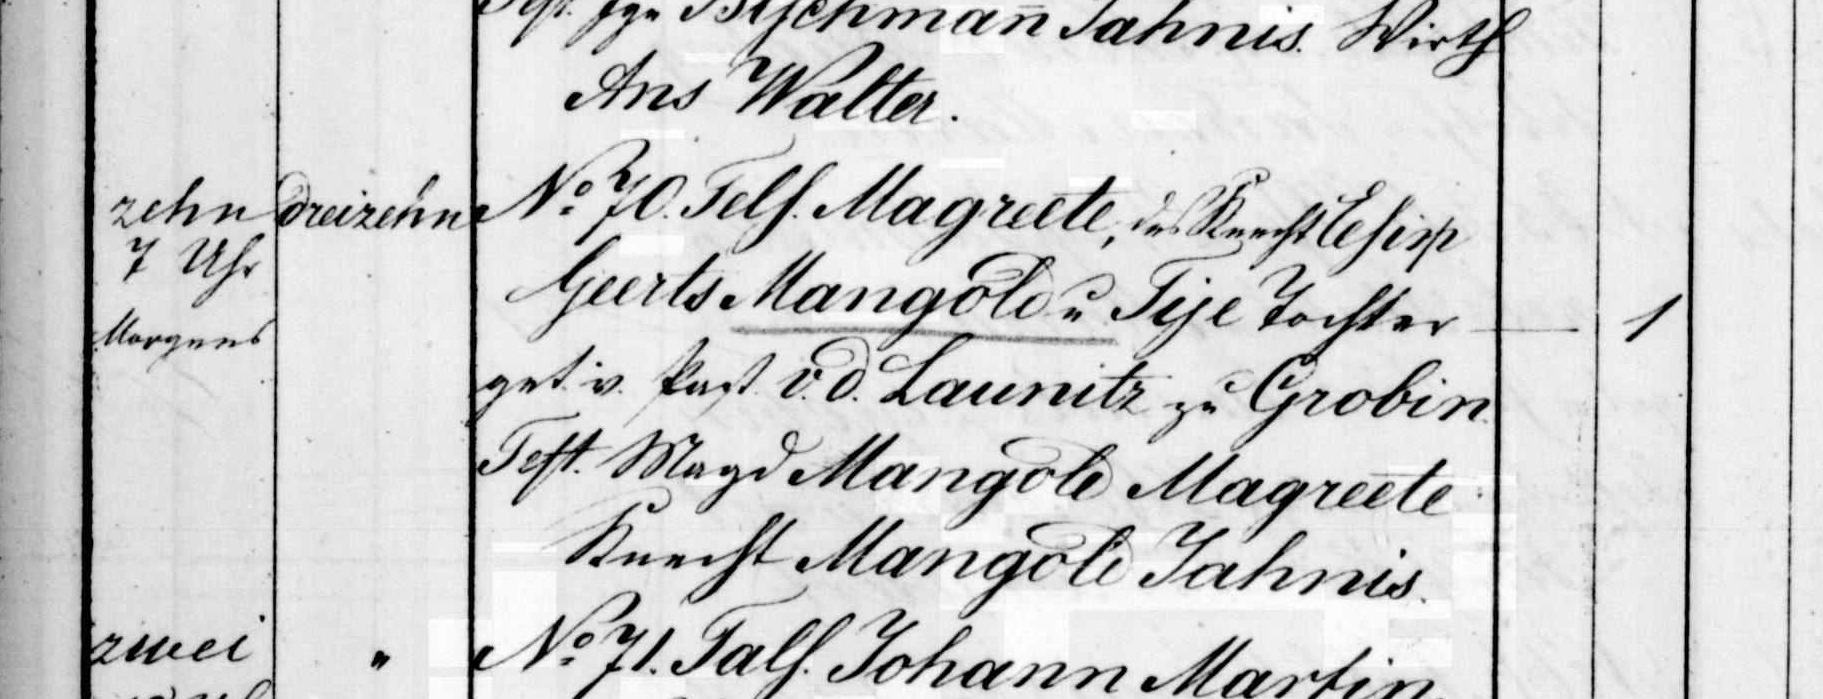 Test. Bischman̄ Jahnis. Wirth
Ans Walter.
zehn dreizehn No. 70. Tels. Magreete, des Knecht
7 Uhr Geerts Mangold u. Tije Tochter — 1
Morgens
get. v. Past. v. d. Launitz zu Grobin.
Test. Magd Mangold Magreete
Knecht Mangold Jahnis.
zwei " No. 71. Tals. Johann Martin